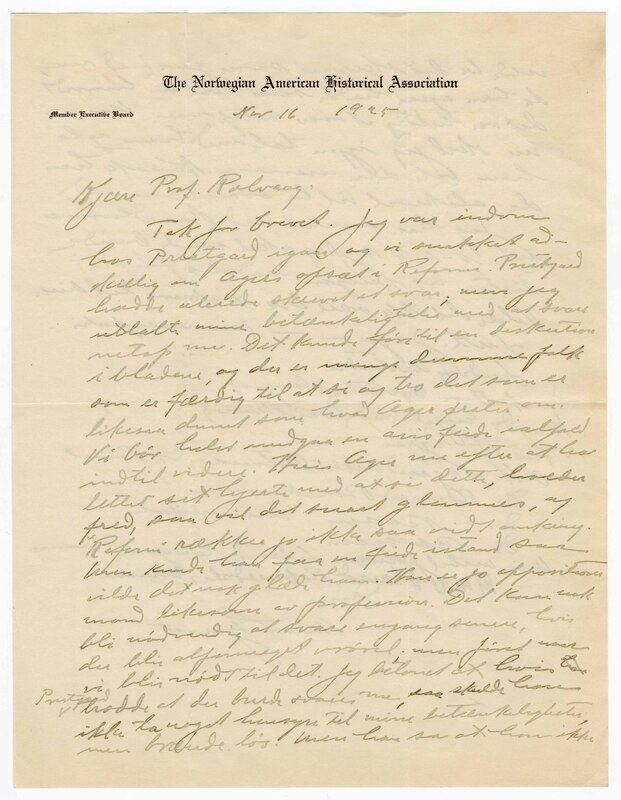 The Norwegian American Historical Association
Member Executive Board
Nov 16 1925
Kjære Prof. Rolvaag:
Tak for brevet. Jeg var indom
hos Prestgard igaar og vi snakket ad-
skillig om Agers opsæt i Reform. Prestgard
hadde allerede skrevet et svar, men jeg
uttalte mine betænkeligheter med at svare
netop nu. Det kunde føre til en diskution
i bladene, og der er mange dumme folk
som er færdig til at si og tro det som er
likesaa dumt som hvad Ager prater om.
Vi bør helst undgaa en avisfeide ialfald
indtil videre. Hvis Ager nu efter at ha
lettet sit hjerte med at si dette, holder
fred, saa vil det snart glemmes, og
"Reform" rækker jo ikke saa vidt omkring.
Men kunde han faa en feide istand saa
vilde det nok glæde ham. Han er jo oppositions
mand likesom av profession. Det kan nok
bli nødvendig at svare engang senere, hvis
der blir altfor meget vrøvel, men først naar
vi blir nødt til det. Jeg betonet at hvis han
Prestgard
trodde at der burde svares nu, saa skulde han
ikke ta noget hensyn til mine betænkeligheter,
men brænde løs. Men han sa at han ikke